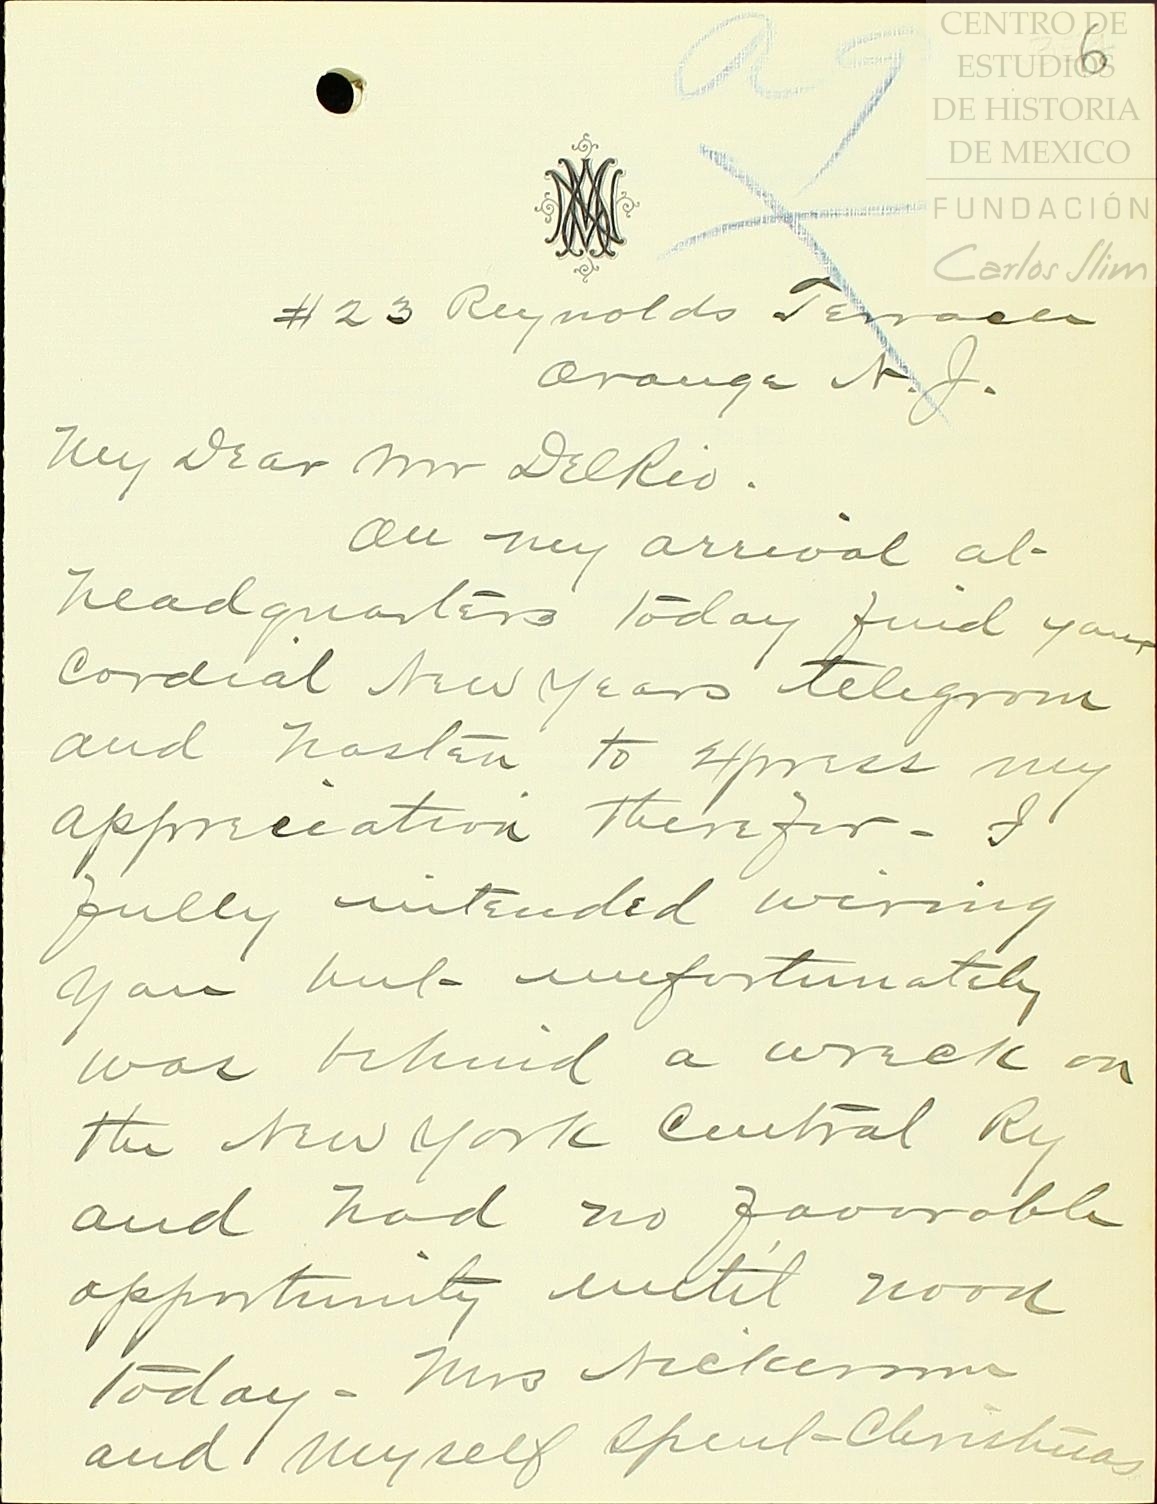 CENTRO DE
ESTUDIOS
DE HISTORIA
DE MEXICO
FUNDACIÓN
Carlos Slim
6
#23 Reynolds Terrace
Orange N.J.
My Dear Mr DelRio.
On my arrival at
headquarters today find your
cordial New Years telegram
and hasten to express my
appreciation therefor - I
fully intended wiring
you but unfortunately
was behind a wreck on
the New York Central Ry
and had no favorable
opportunity until noon
today - Mrs Nickerson
and myself spent Christmas